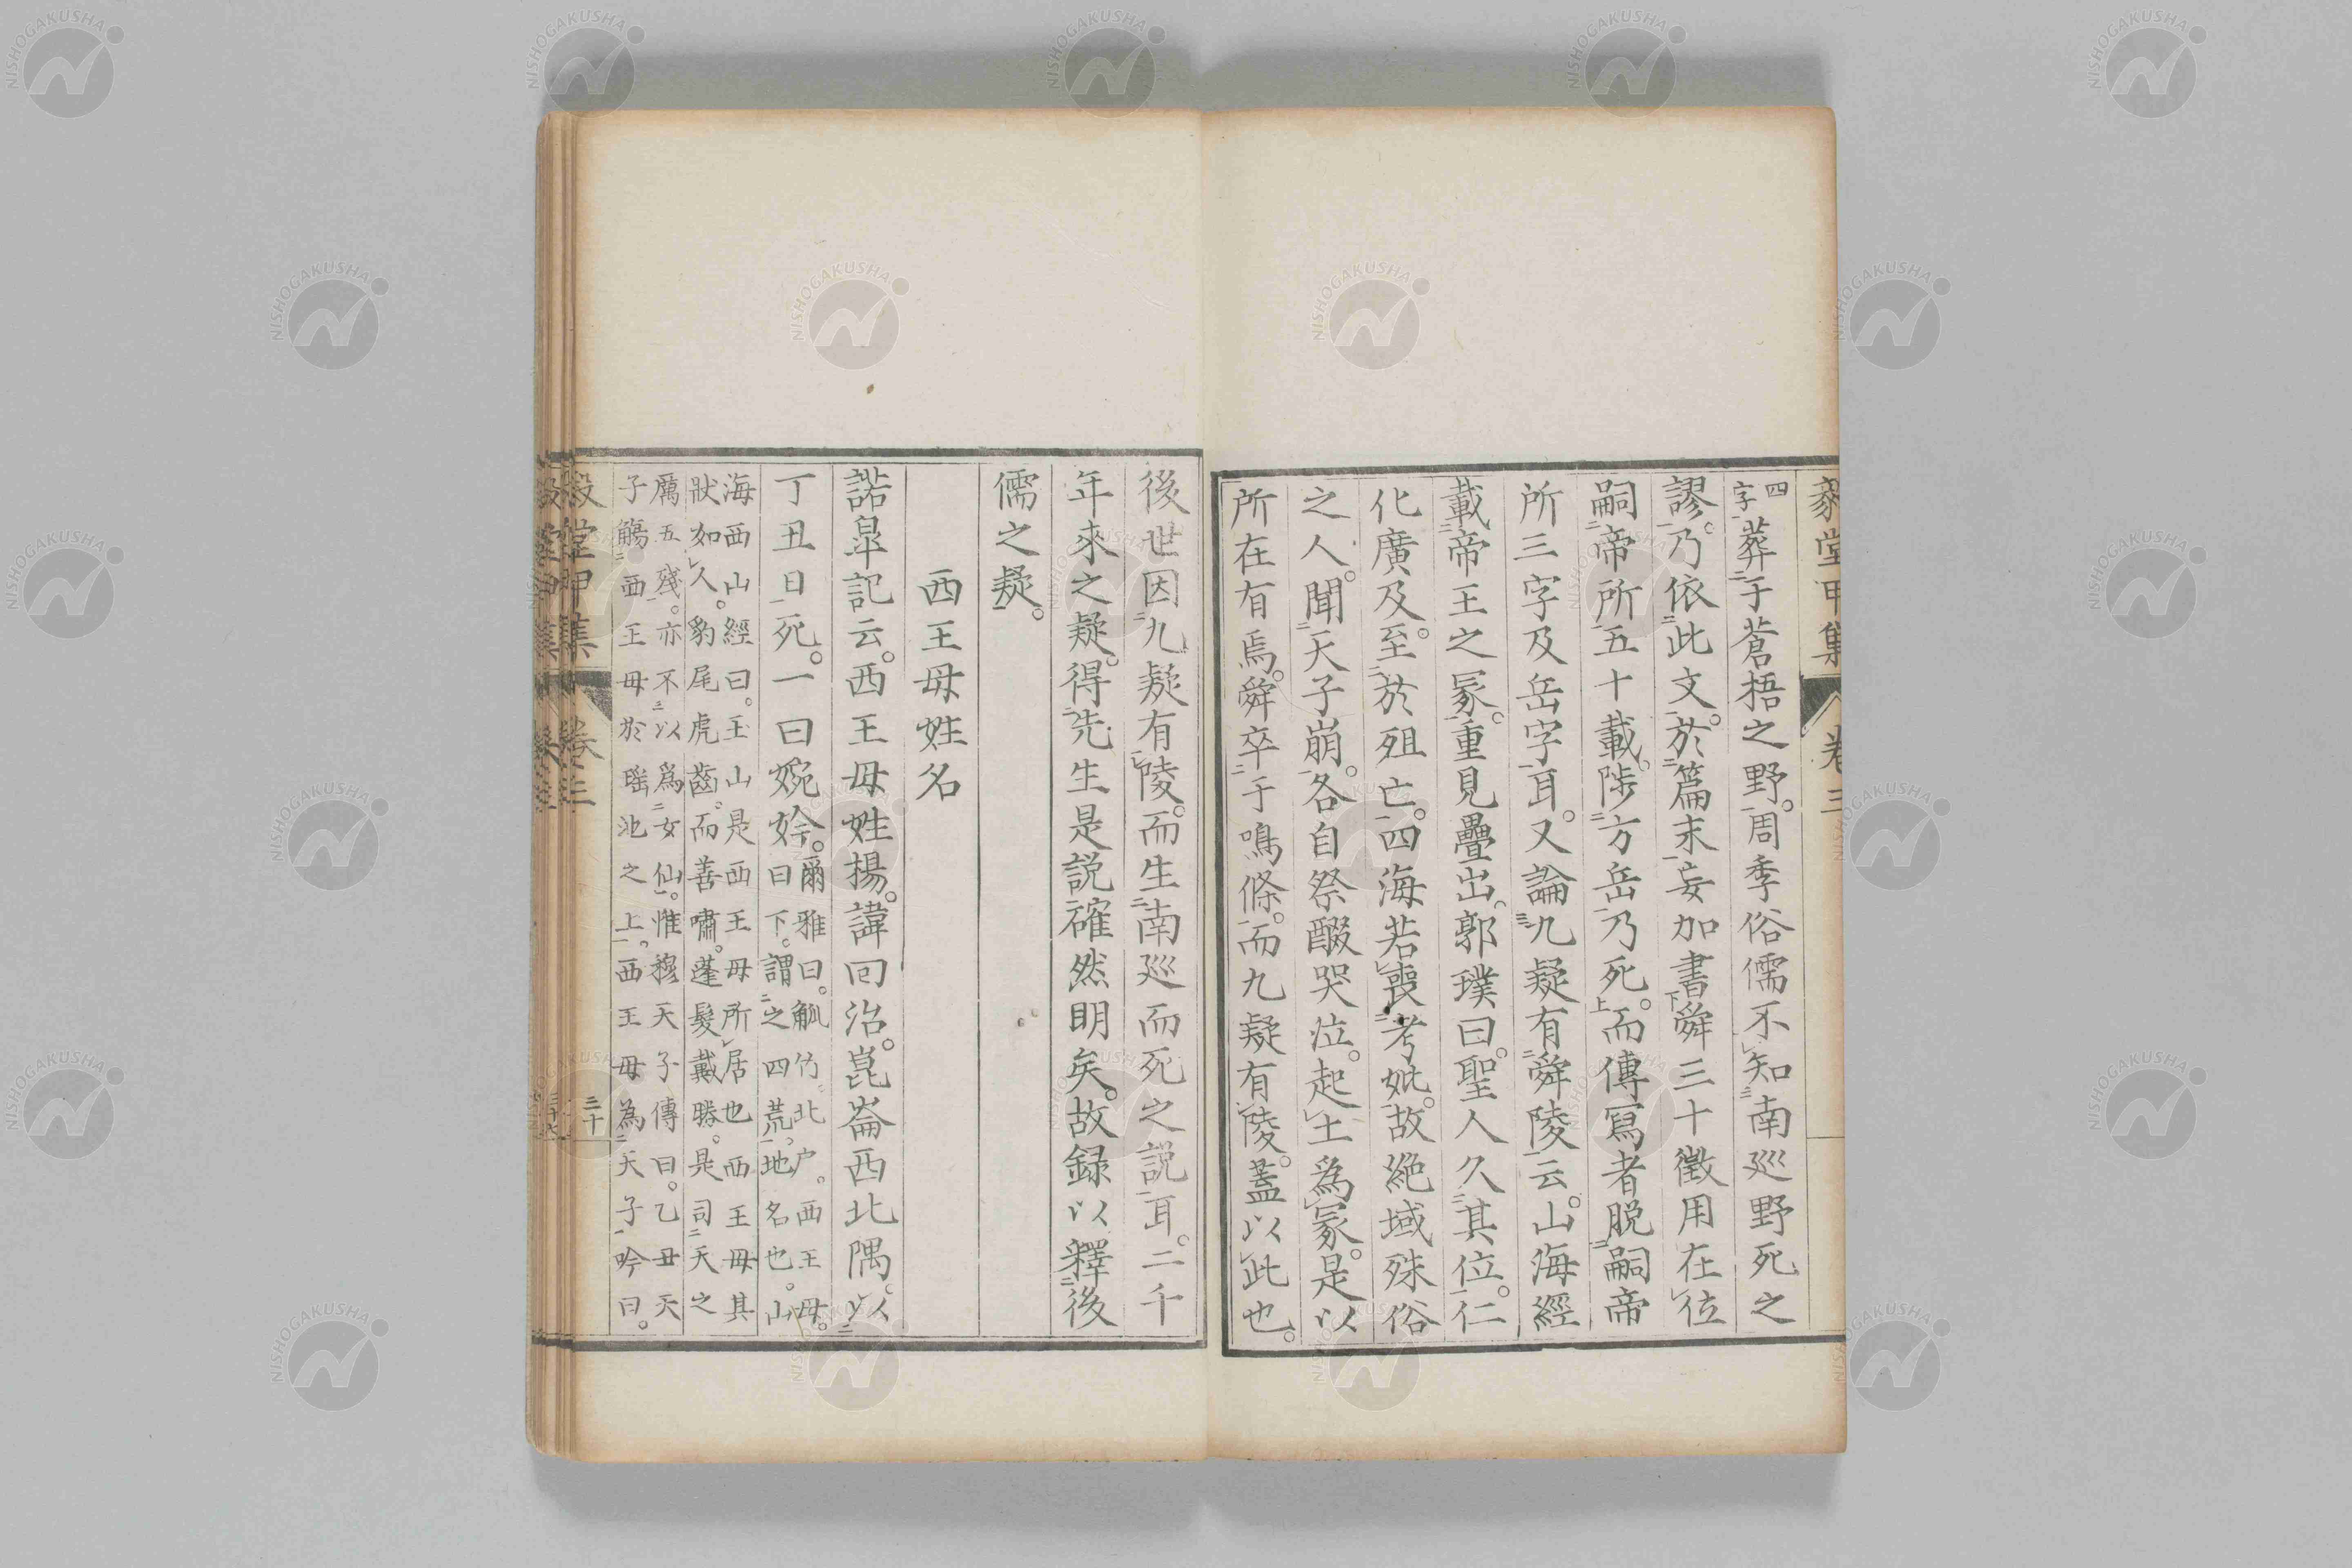 毅堂甲集 卷三
四字葬于蒼梧之野。周季俗儒不知南巡野死之
謬。乃依此文。於篇末妄加書舜三十徵用在位
嗣帝所五十載。陟方岳乃死。而傳寫者脱嗣帝
所三字及岳字耳。又論九疑有舜陵云。山海經
載帝王之冢。重見疊出。郭璞曰。聖人久其位。仁
化廣及。至於殂亡。四海若喪考妣。故絕域殊俗
之人。聞天子崩。各自祭醊哭泣。起土為冢。是以
所在有焉。舜卒于鳴條。而九疑有陵。蓋以此也。
後世因九疑有陵。而生南巡而死之説耳。二千
年來之疑。得先生是説確然明矣。故録以釋後
儒之疑。
西王母姓名
諾皐記云。西王母姓揚。諱回治。崑崙西北隅。以
丁丑日死。一曰婉妗。爾雅曰。觚竹北户。西王母。
日下。謂之四荒。地名也。山
海西山經曰。玉山是西王母所居也西王母其
狀如人。豹尾虎齒。而善嘯。蓬髮戴勝。是司天之
厲五殘。亦不以爲女仙。惟穆天子傳曰。乙丑天
子觴西王母於瑤池之上。西王母為天子吟曰。
毅堂甲集 卷三 三十
NISHOGAKUSHA